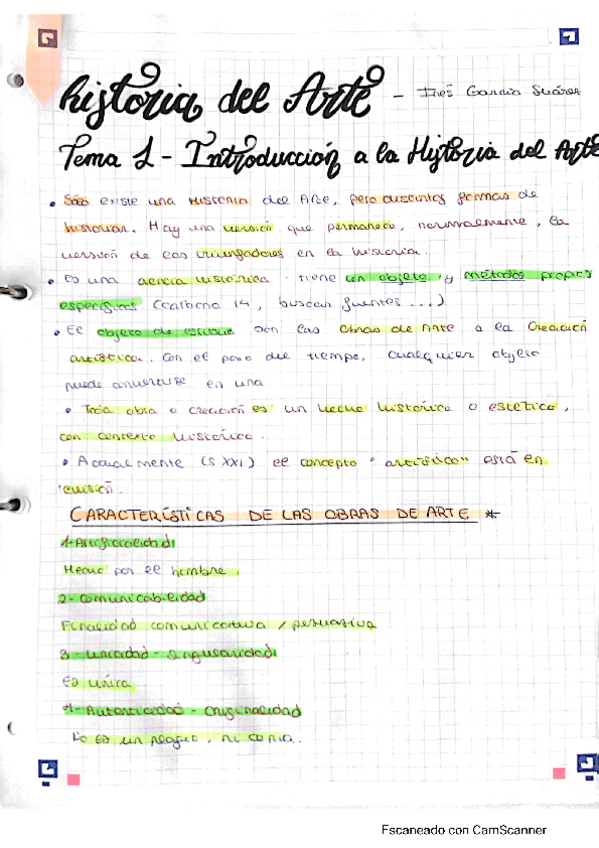 historia del Arte - Inés García Suárez
Tema 1 - Introducción a la Historia del Arte
• Sólo existe una Historia del Arte, pero distintas formas de
historiar. Hay una versión que permanece, normalmente, la
versión de los triunfadores en la historia.
• Es una ciencia histórica: tiene un objeto y métodos propios
específicos (carbono 14, buscar fuentes ...)
• El objeto de estudio son las Obras de Arte o la Creación
artística. Con el paso del tiempo, cualquier objeto
puede convertirse en una
• Toda obra o creación es un hecho histórico o estético,
con contexto histórico.
• Actualmente (S XXI) el concepto "artístico" está en
revisión.
CARACTERÍSTICAS DE LAS OBRAS DE ARTE *
1-Artificialidad
Hecho por el hombre.
2-Comunicabilidad
Finalidad comunicativa / persuasiva
3-Unicidad-Singularidad
Es única
4-Autenticidad-Originalidad
No es un plagio, ni copia.
Escaneado con CamScanner